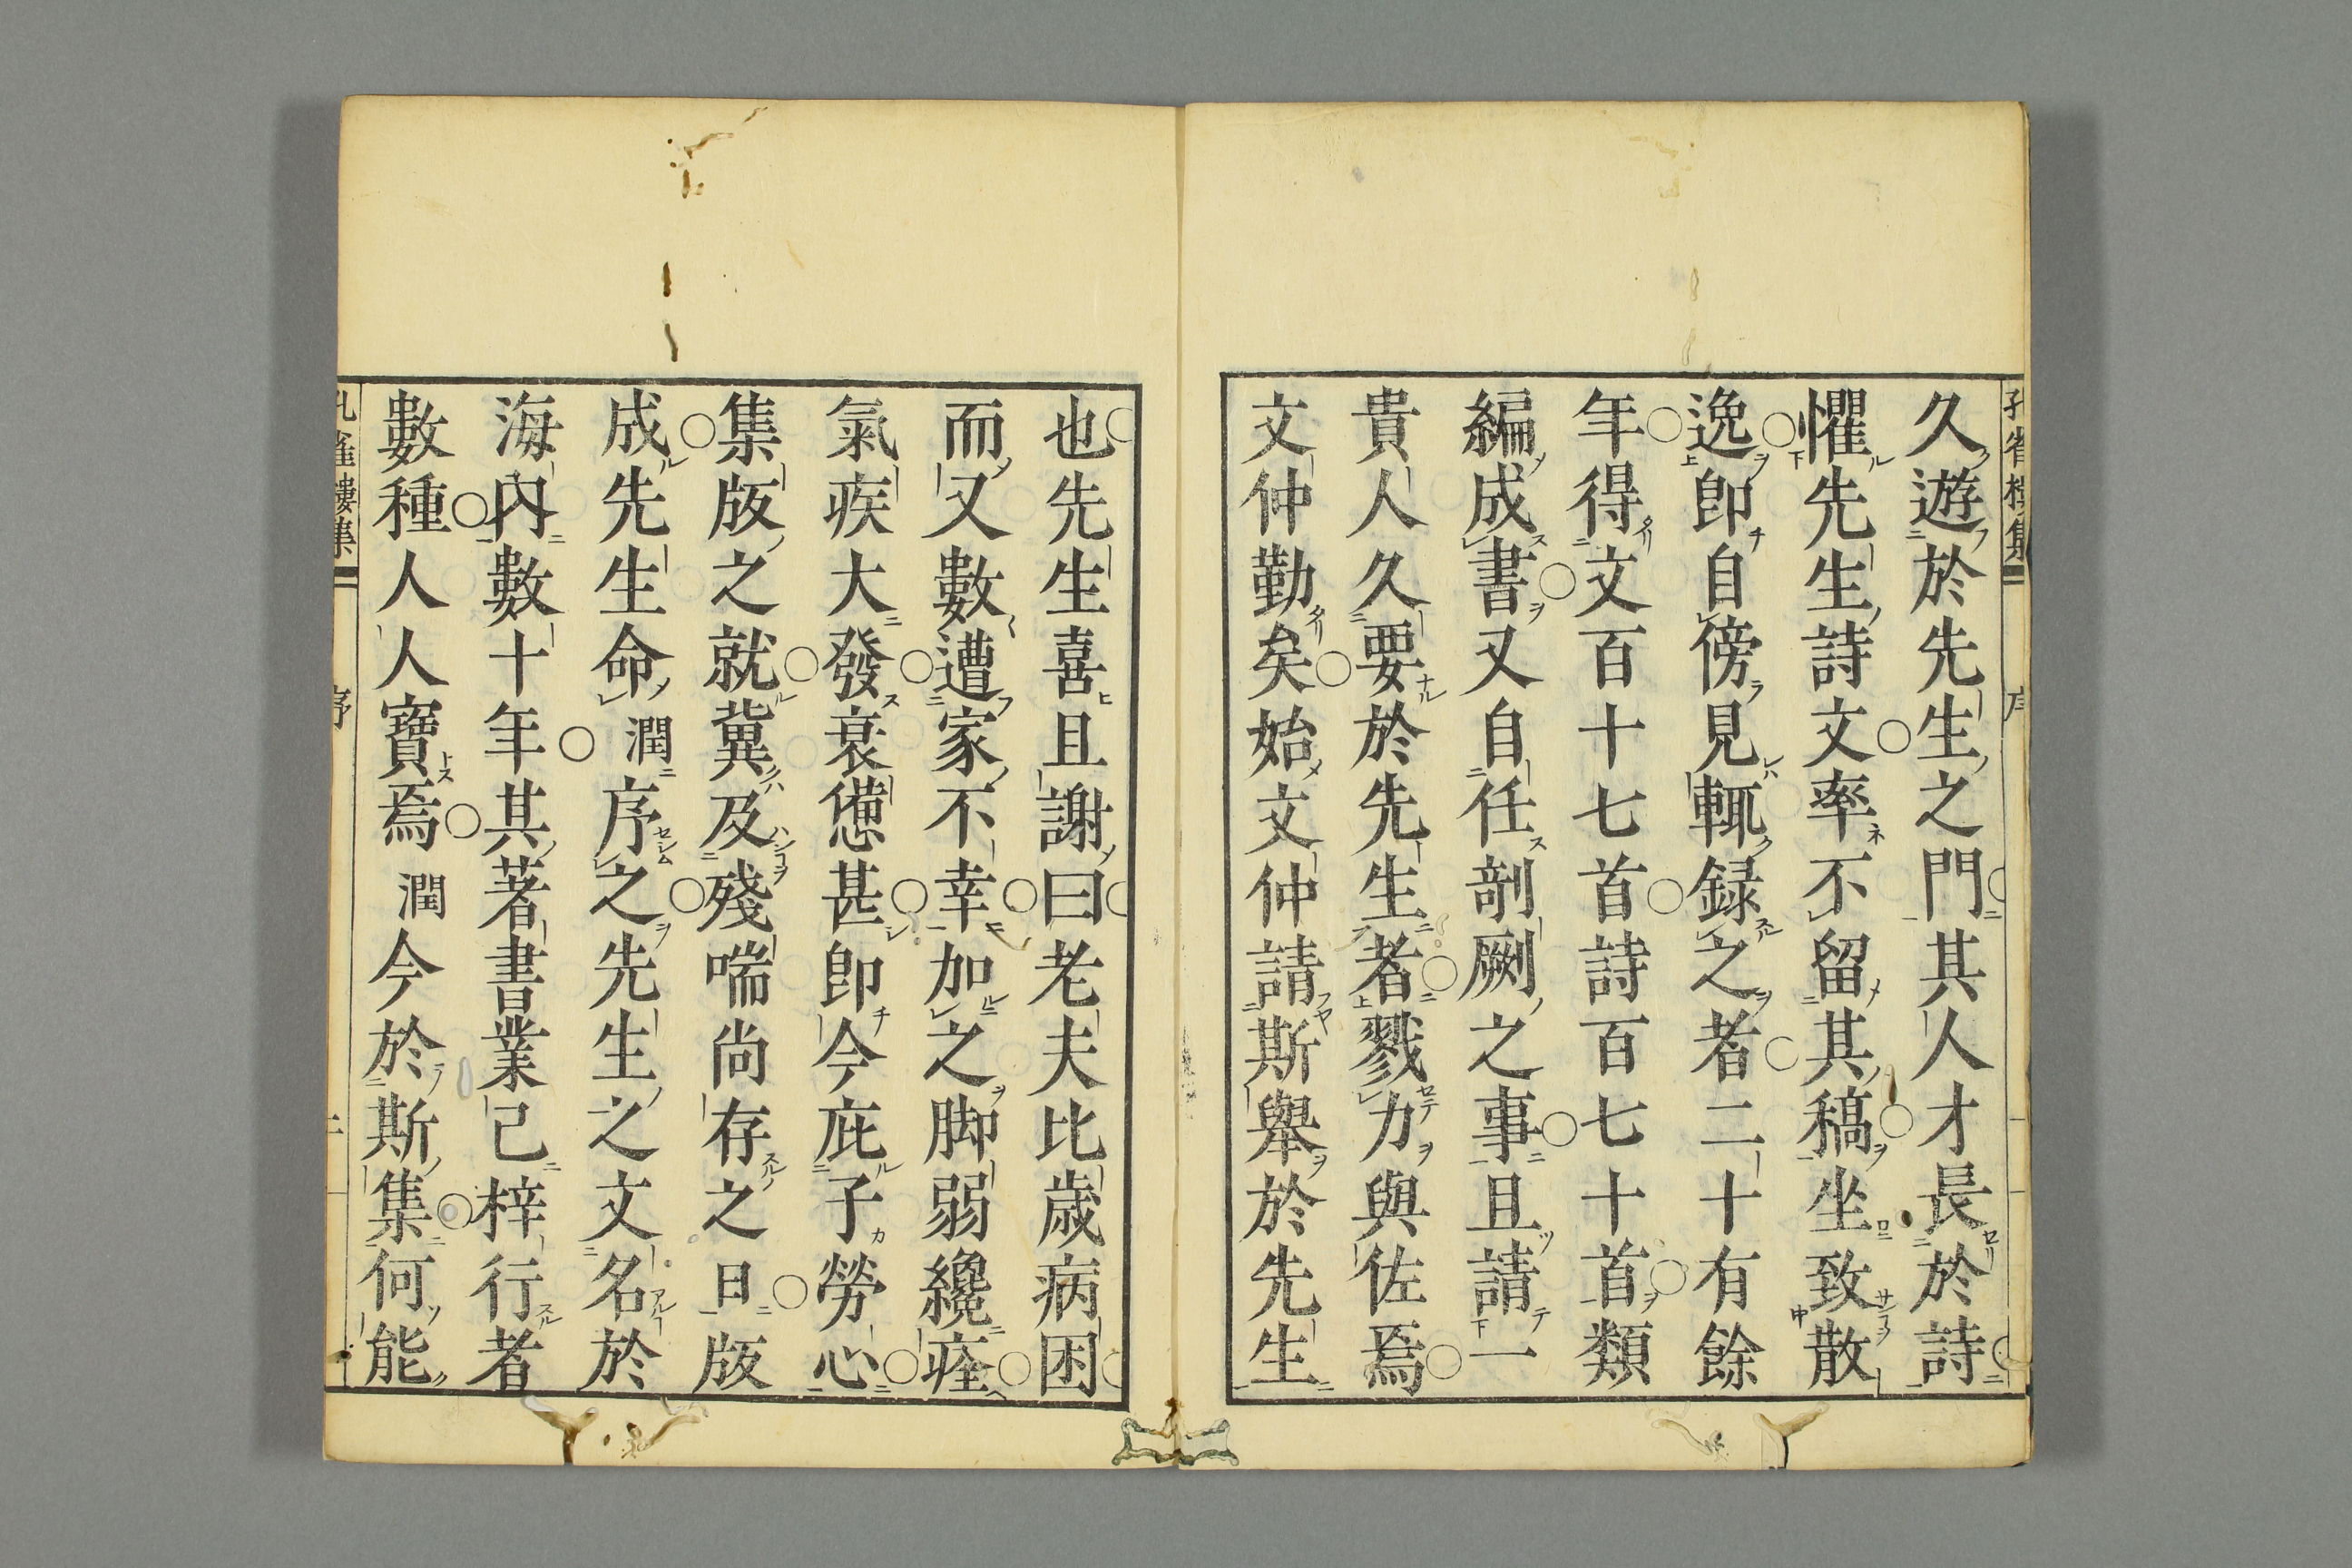 久遊於先生之門其人才長於詩
懼先生詩文率不留其稿坐致散
逸卽自傍見輒録之者二十有餘
年得文百十七首詩百七十首類
編成書又自任剞劂之事且請一
貴人久要於先生者戮力與佐焉
文仲勤矣始文仲請斯舉於先生
也先生喜且謝曰老夫比歳病困
而又數遭家不幸加之脚弱纔痊
氣疾大發衰憊甚卽今庇子勞心
集版之就冀及殘喘尚存之日版
成先生命潤序之先生之文名於
海內數十年其著書業已梓行者
數種人人寶焉潤今於斯集何能
孔雀樓集
序